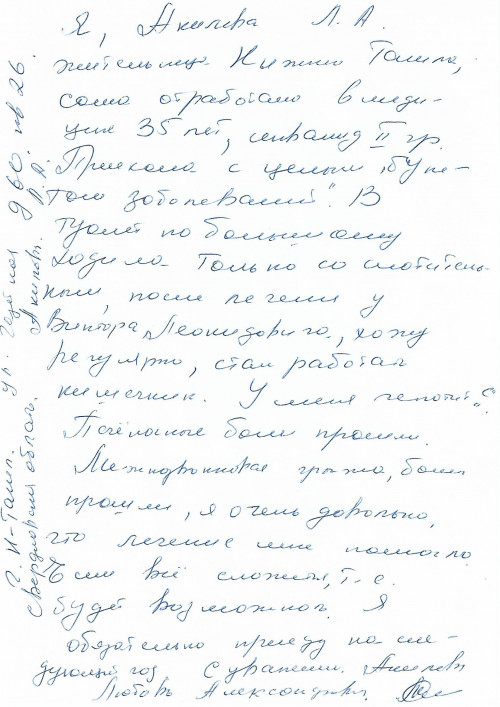 Я, Акилова Л. А.
жительница Нижний Тагила,
сама отработала в меди-
цине 35 лет, инвалид II гр.
Приехала с целым "буке-
том заболеваний". В
туалет по большому
ходила только со слабитель-
ным, после лечения у
Виктора Леонидовича, хожу
регулярно, стал работать
кишечник. У меня гепатит "С".
Печёночные боли прошли.
Межпозвонковая грыжа, боли
прошли, я очень довольна,
что лечение мне помогло.
всё сложится, т.е.
будет возможность Я
обязательно приеду на сле-
дующий год С уважением. Акилова
Любовь Александровна.
г. Н-Тагил. ул.
д 60. кв 26.
Свердловская облас. Акилова Л.А.